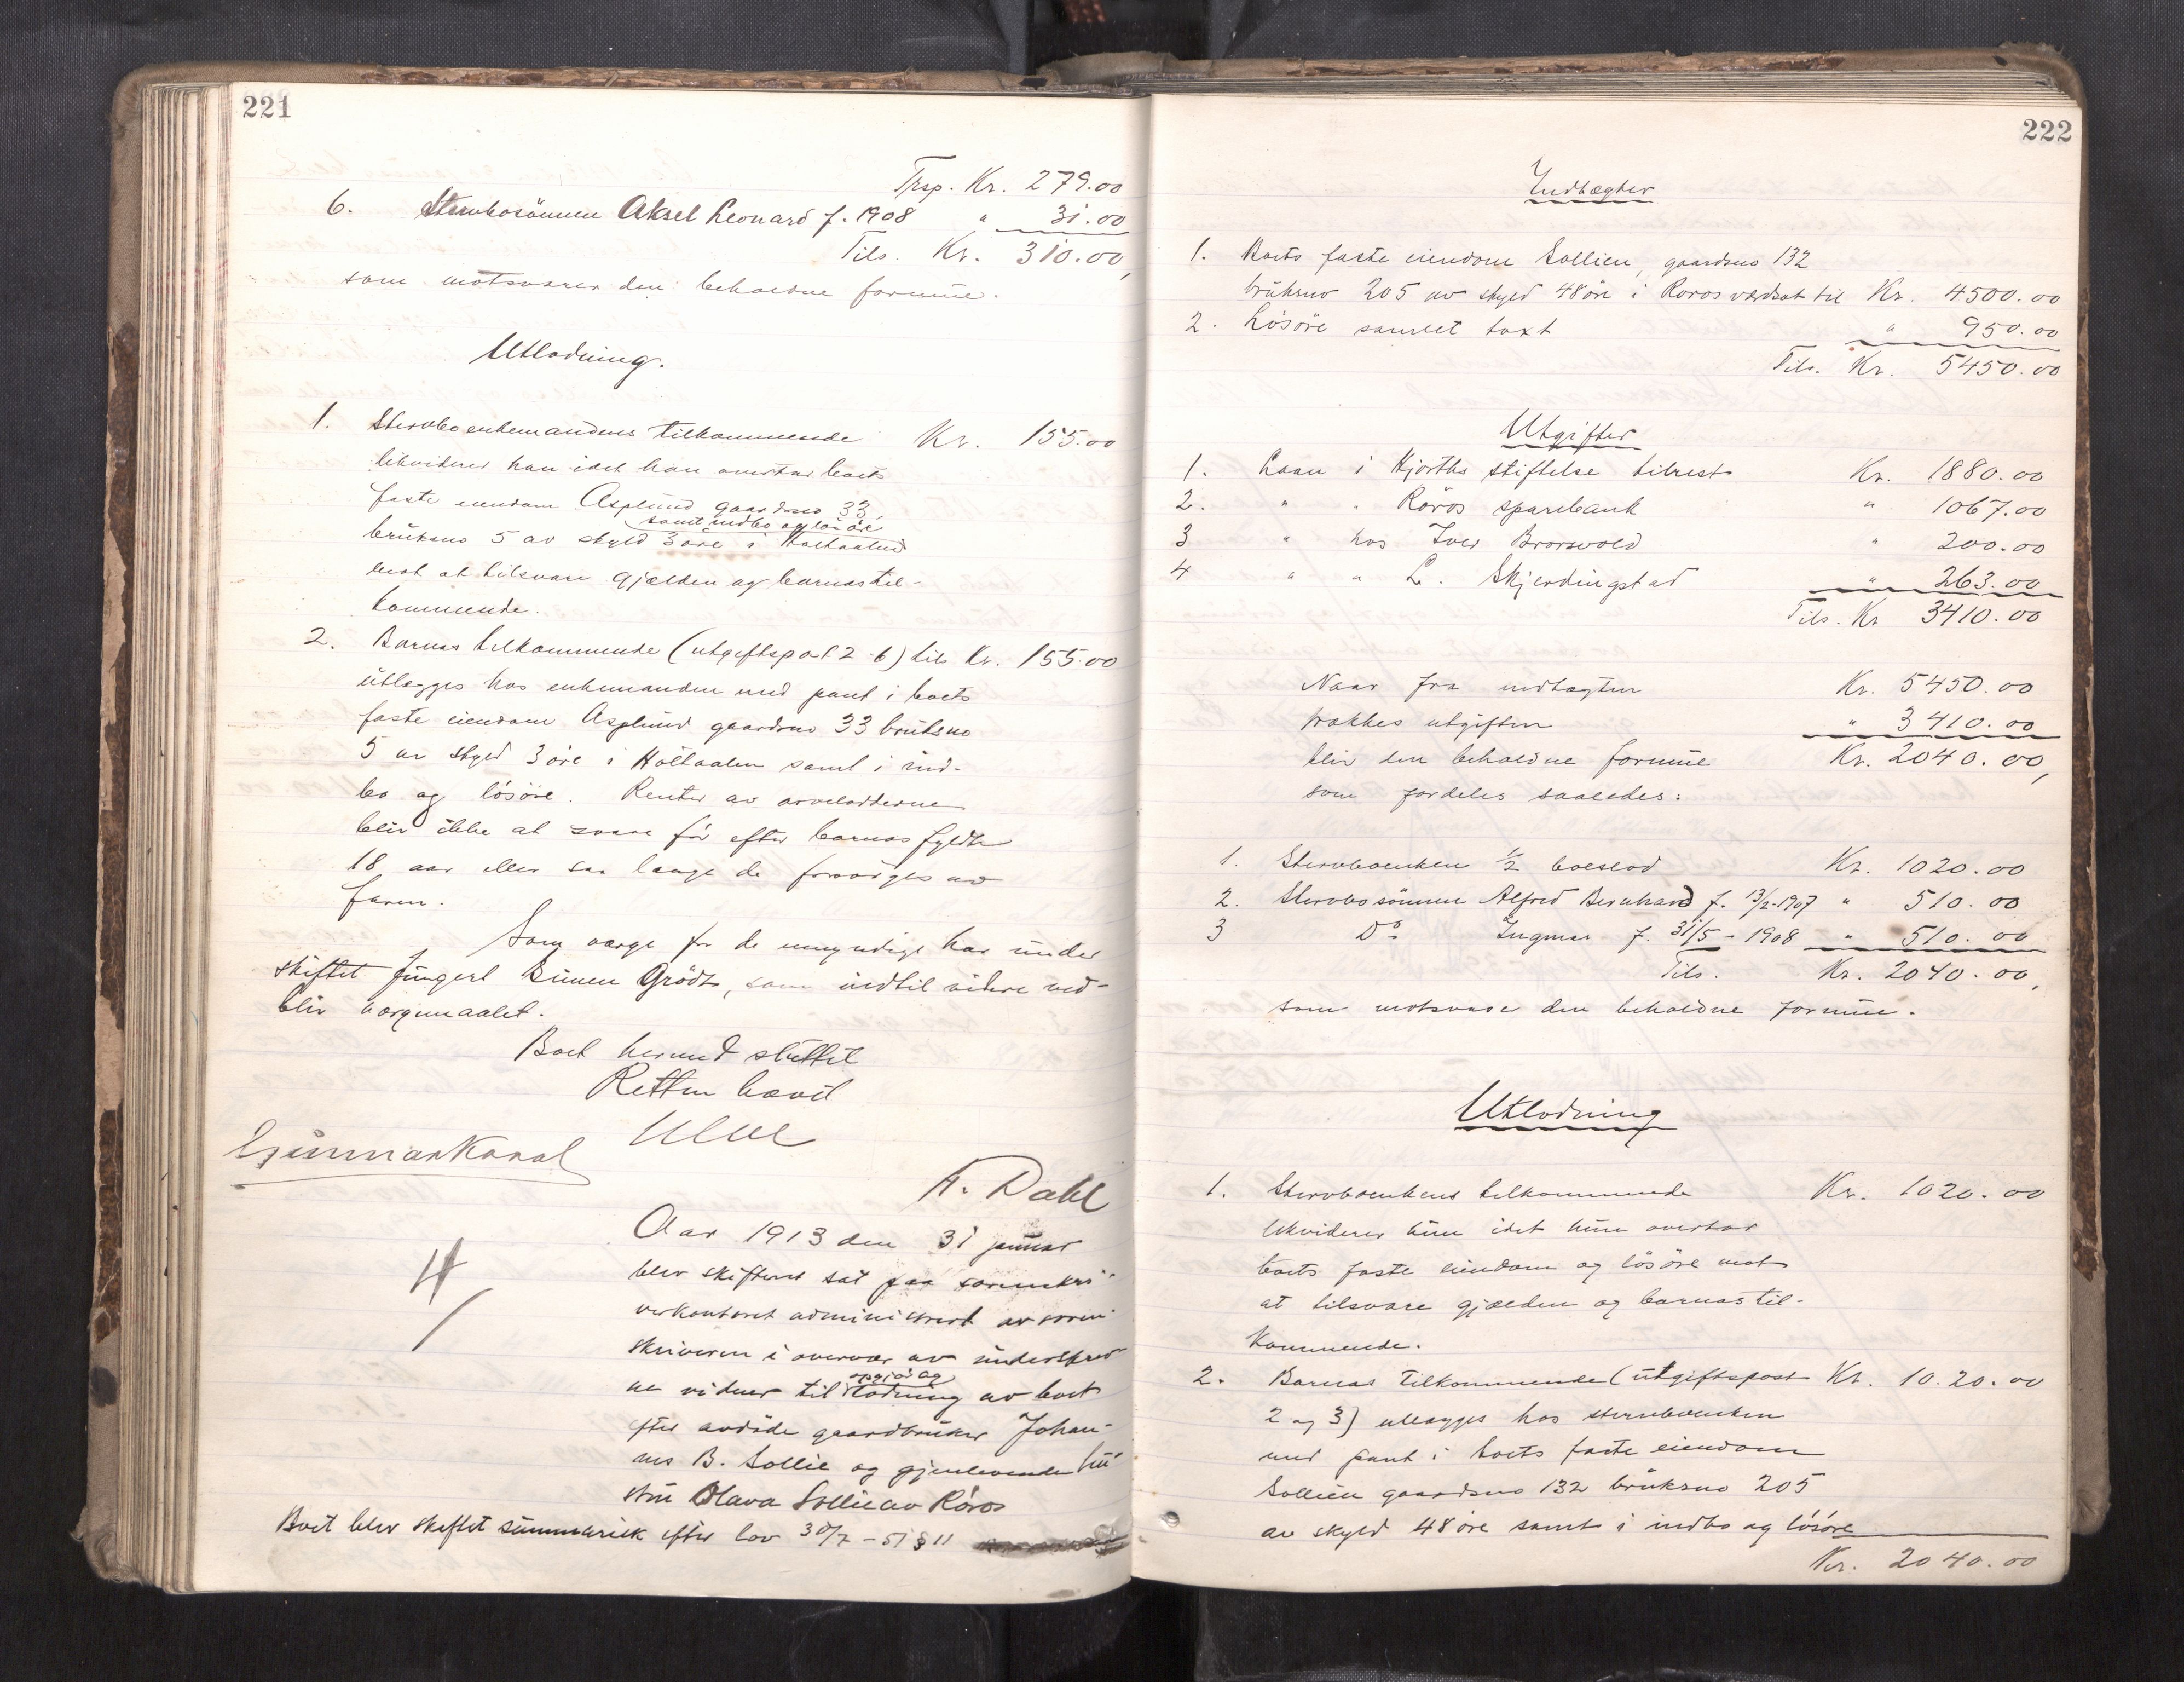 221
Trsp. Kr. 279.00
6. Stervbosönnen Aksel Leonard f. 1908 " 31.00
Tils. Kr. 310.00,
som motsvarer den beholdne formue.
Utlodning.
1. Stervboenkemandens tilkommende Kr. 155.00
likviderer han idet han overtar boets
faste eiendom Asplund gaardsno 33,
samt indbo og lösöre
bruksno 5 av skyld 3 öre i Holtaalen
mot at tilsvare gjælden og barnas til-
kommende.
2. Barnas tilkommende (utgiftspost 2-6) tils Kr. 155.00
utlægges hos enkemanden med pant i boets
faste eiendom Asplund gaardsno 33 bruksno
5 av skyld 3 öre i Holtaalen samt i ind-
bo og lösöre. Renter av arveloddene
blir ikke at svare för efter barnas fyldte
18 aar eller saa længe de forsörges av
faren.
Som værge for de umyndige har under
skiftet fungert Simen Grödt, som indtil videre ved-
blir værgemaalet.
Boet hermed sluttet
Retten hævet
Gunnar Kaval
A. Dahl
Aar 1913 den 31 januar
blev skifteret sat paa sorenskri-
verkontoret administrert av soren-
skriveren i overvær av underskrev-
opgjör og
ne vidner til lodning av boet
efter avdöde gaardbruker Johan-
nes B. Sollie og gjenlevende hu-
stru Olava Sollie av Röros
Boet blev skiftet summarisk efter lov 30/7 - 51 § 11
222
Indtægter
1. Boets faste eiendom Sollien, gaardsno 132
bruksno 205 av skyld 48 öre i Röros værdsat til Kr. 4500.00
2. Lösöre samlet taxt " 950.00
Tils. Kr. 5450.00
Utgifter
1. Laan i Hjorths stiftelse tilrest Kr. 1880.00
2. " " Röros sparebank " 1067.00
3 " hos Iver Brorsvold " 200.00
4 " " L. Skjerdingstad " 263.00
Tils. Kr 3410.00
Naar fra indtægten Kr. 5450.00
trækkes utgiften " 3410.00
blir den beholdne formue Kr. 2040.00,
som fordeles saaledes:
1. Stervboenken 1/2 boeslod Kr. 1020.00
2. Stervbosönnen Alfred Bernhard f. 13/2-1907 " 510.00
3 Do Ingmar f. 31/5 - 1908 " 510.00
Tils. Kr. 2040.00,
som motsvarer den beholdne formue.
Utlodning
1. Stervboenkens tilkommende Kr. 1020.00
likviderer hun idet hun overtar
boets faste eiendom og lösöre mot
at tilsvare gjælden og barnas til-
kommende.
2. Barnas tilkommende (utgiftspost Kr. 10.20.00
2 og 3) utlægges hos stervboenken
med pant i boets faste eiendom
Sollien gaardsno 132 bruksno 205
av skyld 48 öre samt i indbo og lösöre
Kr. 2040.00